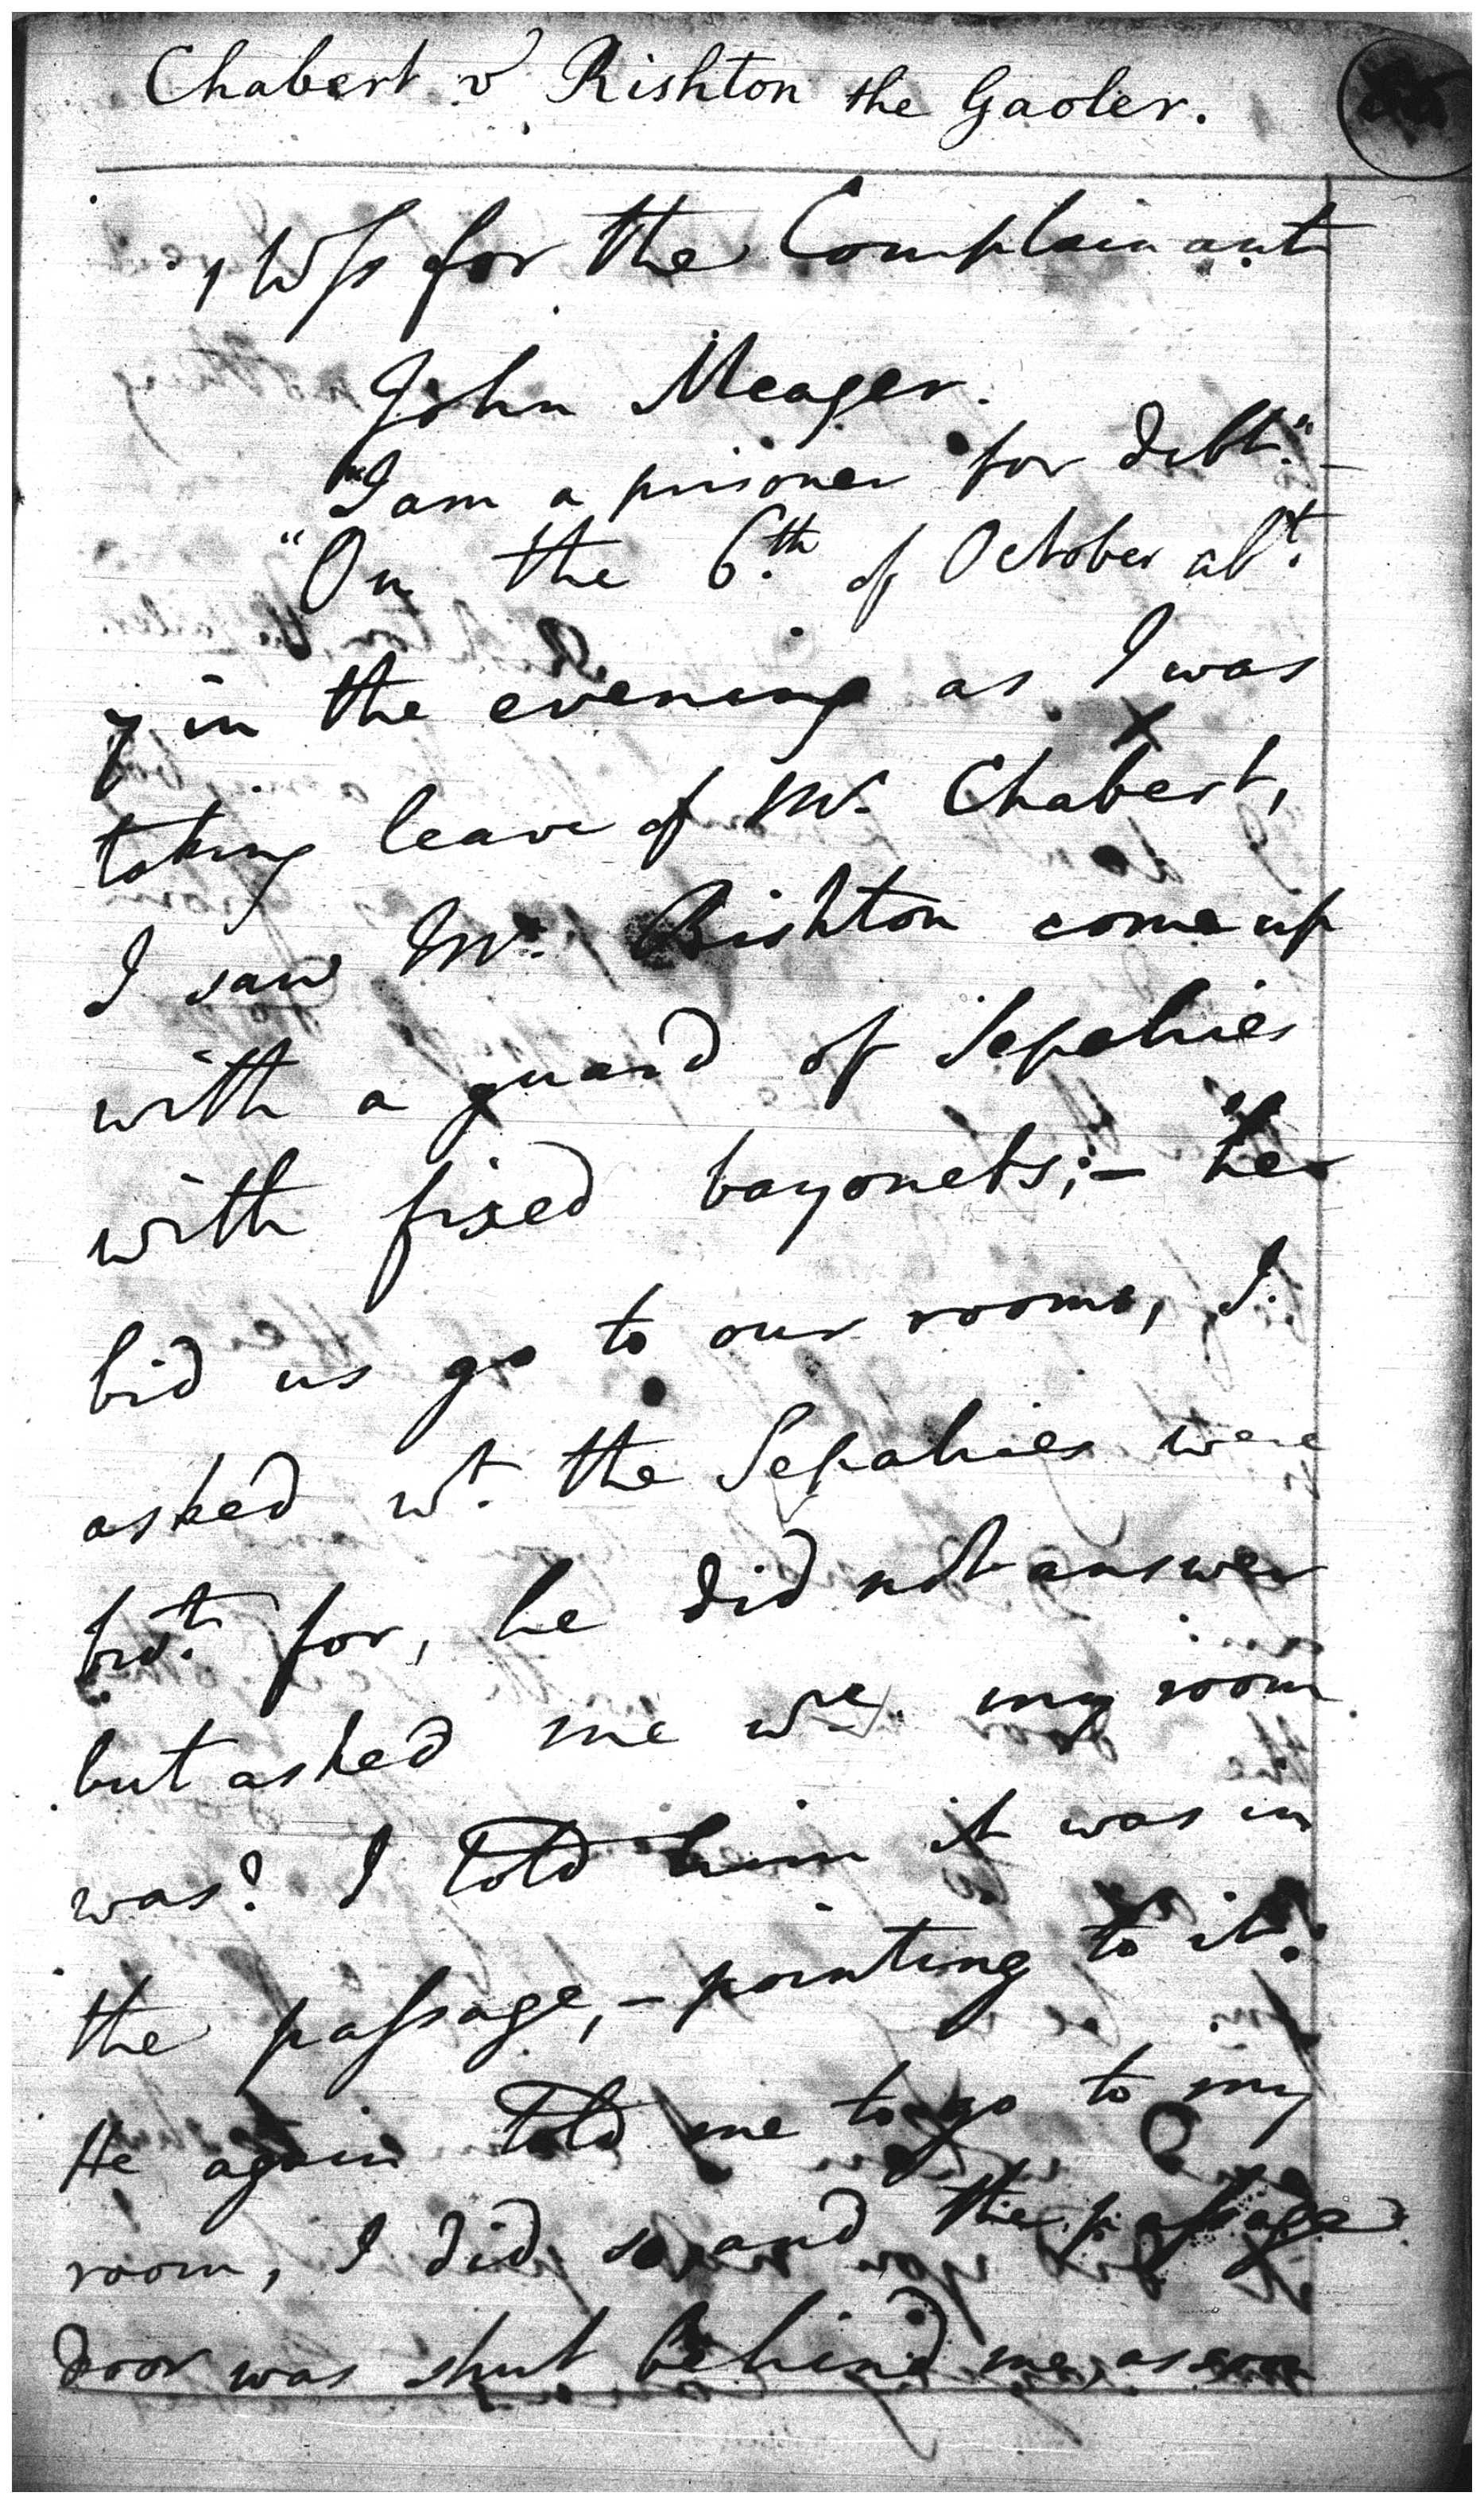 Chabert v Rishton the Gaoler.
1 Wss for the Complainant
John Meager.
"I am a prisoner for debt."
"On the 6.th of October abt.
7 in the evening as I was
taking leave of Mr. Chabert,
I saw Mr. Rishton come up
with a guard of Sepahies
with fixed bayonets;- he
bid us go to our rooms, I
asked wt. the Sepahies were
brot. for, he did not answer
but asked me wre. my room
was? I told him it was in
the passage,- pointing to it.
He again told me to go to my
room, I did so, and the passage
door was shut behind me, as soon